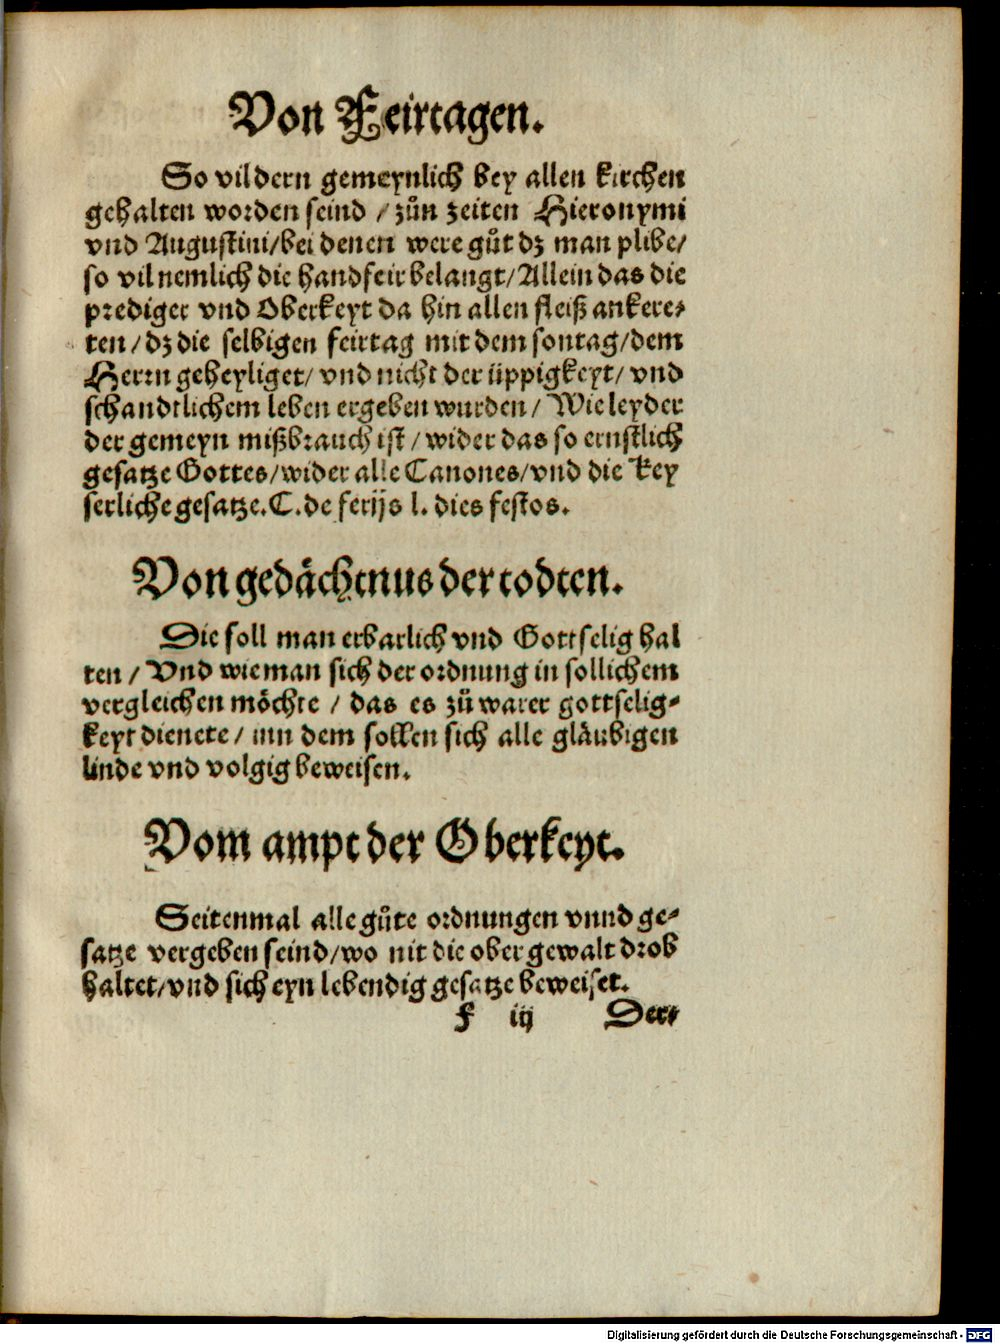 Von Feirtagen.
So vil dern gemeynlich bey allen kirchen
gehalten worden seind / zůn zeiten Hieronymi
vnd Augustini/bei denen were gůt dz man plibe/
so vil nemlich die handfeir belangt/Allein das die
prediger vnd Oberkeyt da hin allen fleiß ankere-
ten / dz die selbigen feirtag mit dem sontag/dem
Herrn geheyliget/ vnd nicht der üppigkeyt/ vnd
schandtlichem leben ergeben wurden / Wie leyder
der gemeyn mißbrauch ist / wider das so ernstlich
gesatze Gottes/wider alle Canones/vnd die key
serliche gesatze.C.de ferijs l. dies festos.
Von gedächtnus der todten.
Die soll man erbarlich vnd Gottselig hal
ten / Vnd wie man sich der ordnung in sollichem
vergleichen möchte / das es zů warer gottselig-
keyt dienete/ inn dem sollen sich alle gläubigen
linde vnd volgig beweisen.
Vom ampt der Oberkeyt.
Seitenmal alle gůte ordnungen vnnd ge-
satze vergeben seind/wo nit die ober gewalt drob
haltet/vnd sich eyn lebendig gesatze beweiset.
F iij Der-
Digitalisierung gefördert durch die Deutsche Forschungsgemeinschaft - DFG